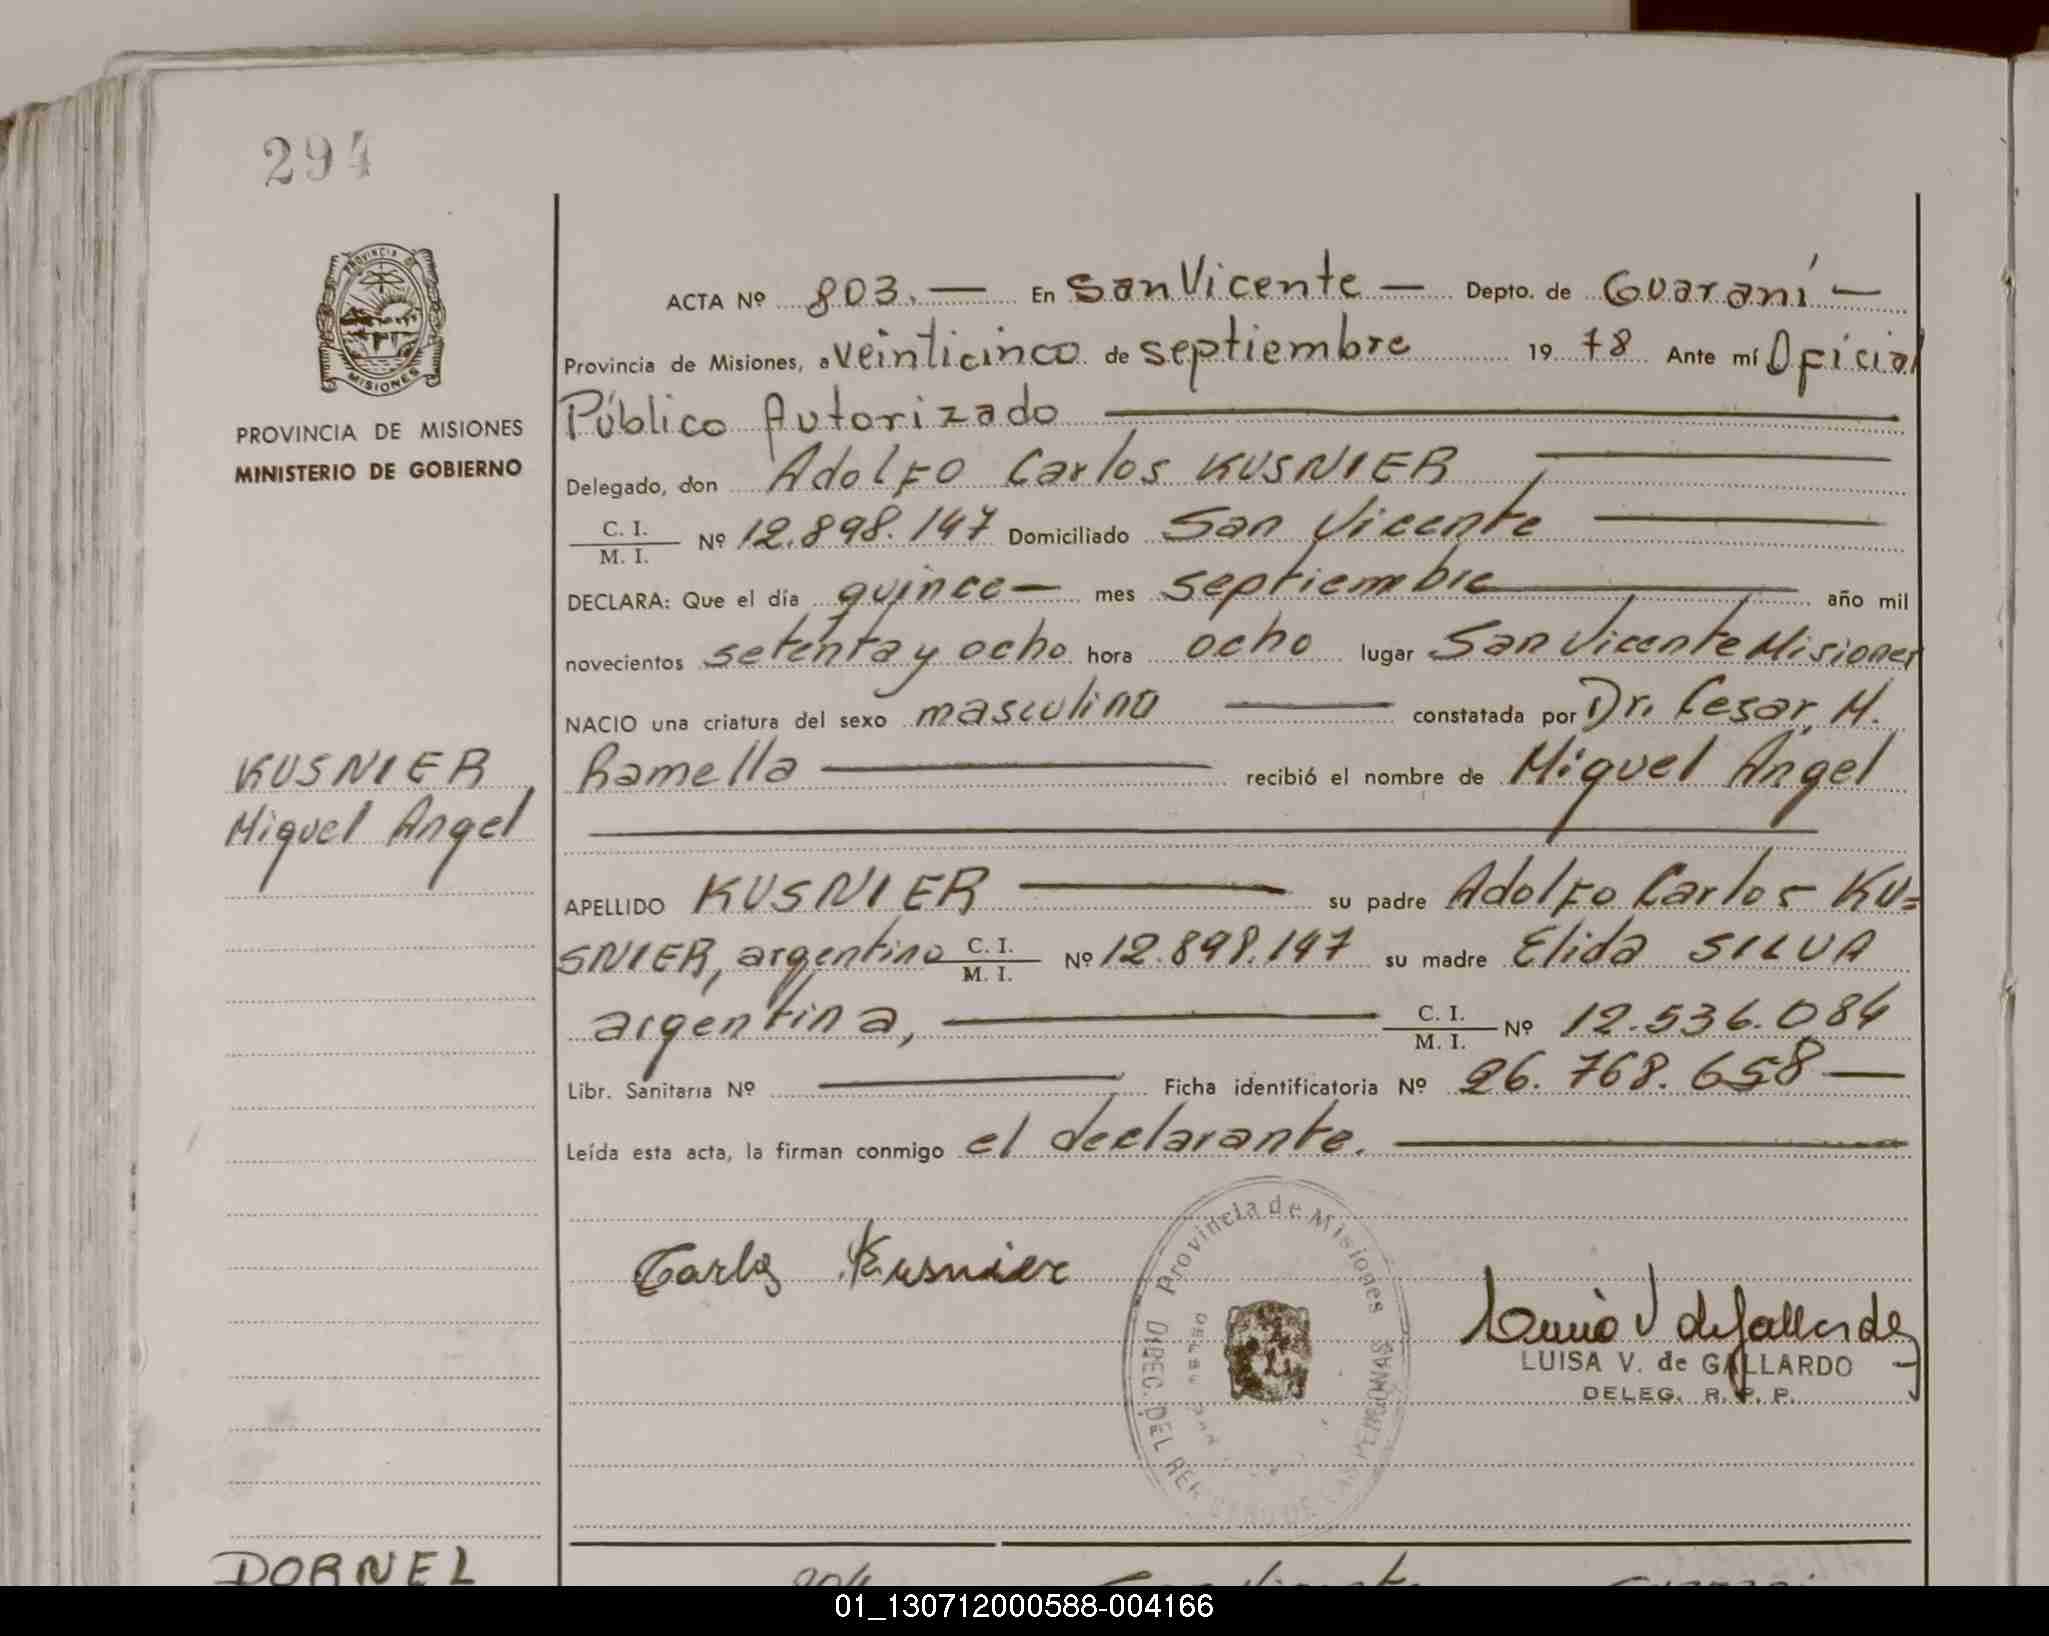 294
PROVINCIA DE MISIONES
PROVINCIA DE MISIONES
MINISTERIO DE GOBIERNO
KUSNIER
Miguel Angel
ACTA Nº 803. — En San Vicente — Depto. de Guaraní —
Provincia de Misiones, a veinticinco de septiembre 19 78 Ante mí Oficial
Público Autorizado
Delegado, don Adolfo Carlos KUSNIER
C. I. / M. I. Nº 12.898.147 Domiciliado San Vicente
DECLARA: Que el día quince — mes septiembre año mil
novecientos setenta y ocho hora ocho lugar San Vicente Misiones
NACIO una criatura del sexo masculino constatada por Dr. Cesar M.
Ramella recibió el nombre de Miguel Angel
APELLIDO KUSNIER su padre Adolfo Carlos KU=
SNIER, argentino C. I. / M. I. Nº 12.898.147 su madre Elida SILVA
argentina, C. I. / M. I. Nº 12.536.084
Libr. Sanitaria Nº Ficha identificatoria Nº 26.768.658 —
Leída esta acta, la firman conmigo el declarante.
Carlos Kusnier
Provincia de Misiones
DIREC. DEL REG. DE LAS PERSONAS
Luisa V de Gallardo
LUISA V. de GALLARDO
DELEG. R. P. P.
DORNEL
804 San Vicente Guaraní
01_130712000588-004166